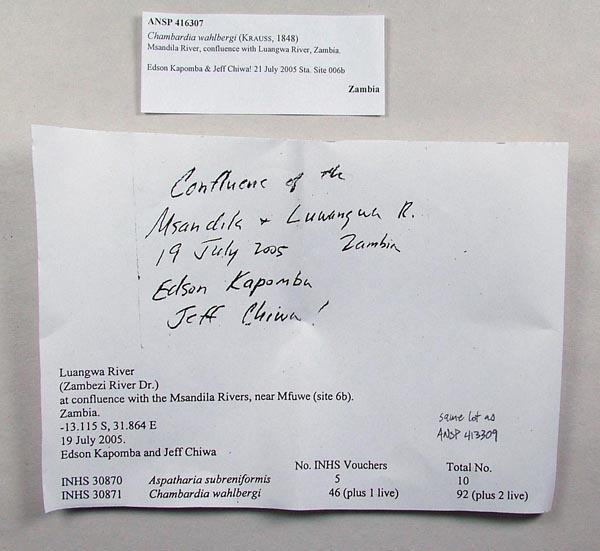 ANSP 416307
Chambardia wahlbergi (KRAUSS, 1848)
Msandila River, confluence with Luangwa River, Zambia.
Edson Kapomba & Jeff Chiwa! 21 July 2005 Sta. Site 006b
Zambia
Confluenc of the
Msandila + Luwangwa R.
19 July 2005 Zambia
Edson Kapomba
Jeff Chiwa!
Luangwa River
(Zambezi River Dr.)
at confluence with the Msandila Rivers, near Mfuwe (site 6b).
Zambia.
-13.115 S, 31.864 E
19 July 2005.
Edson Kapomba and Jeff Chiwa
same lot as
ANSP 413309
No. INHS Vouchers Total No.
INHS 30870 Aspatharia subreniformis 5 10
INHS 30871 Chambardia wahlbergi 46 (plus 1 live) 92 (plus 2 live)